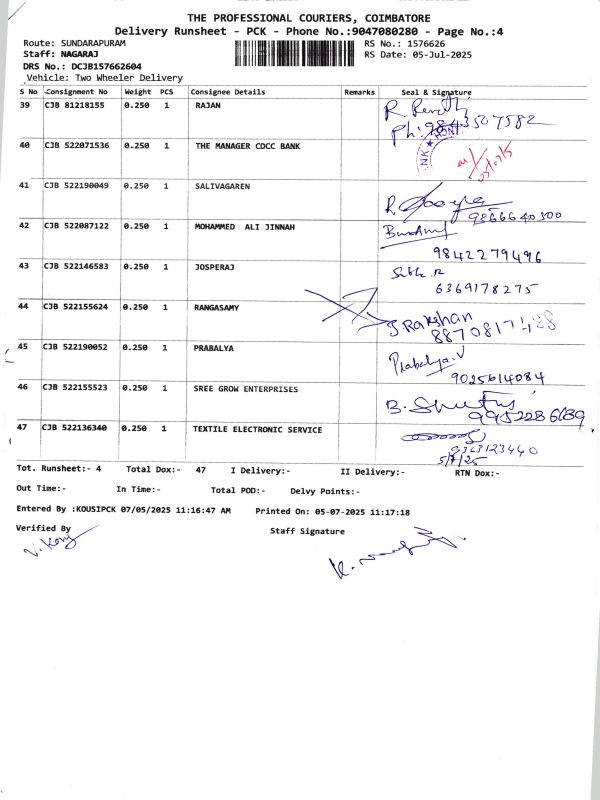 THE PROFESSIONAL COURIERS, COIMBATORE
Delivery Runsheet - PCK - Phone No.:9047080280 - Page No.:4
Route: SUNDARAPURAM RS No.: 1576626
Staff: NAGARAJ RS Date: 05-Jul-2025
DRS No.: DCJB157662604
Vehicle: Two Wheeler Delivery
S No Consignment No Weight PCS Consignee Details Remarks Seal & Signature
39 CJB 81218155 0.250 1 RAJAN R
Ph: 9843507582
40 CJB 522071536 0.250 1 THE MANAGER CDCC BANK
41 CJB 522190049 0.250 1 SALIVAGAREN R
9866640500
42 CJB 522087122 0.250 1 MOHAMMED ALI JINNAH
9842279496
43 CJB 522146583 0.250 1 JOSPERAJ
6369178275
44 CJB 522155624 0.250 1 RANGASAMY J Rakshan
45 CJB 522190052 0.250 1 PRABALYA Prabalya.V
9025614084
46 CJB 522155523 0.250 1 SREE GROW ENTERPRISES B.
9952286689
47 CJB 522136340 0.250 1 TEXTILE ELECTRONIC SERVICE
9363123440
5/7/25
Tot. Runsheet:- 4 Total Dox:- 47 I Delivery:- II Delivery:- RTN Dox:-
Out Time:- In Time:- Total POD:- Delvy Points:-
Entered By :KOUSIPCK 07/05/2025 11:16:47 AM Printed On: 05-07-2025 11:17:18
Verified By Staff Signature